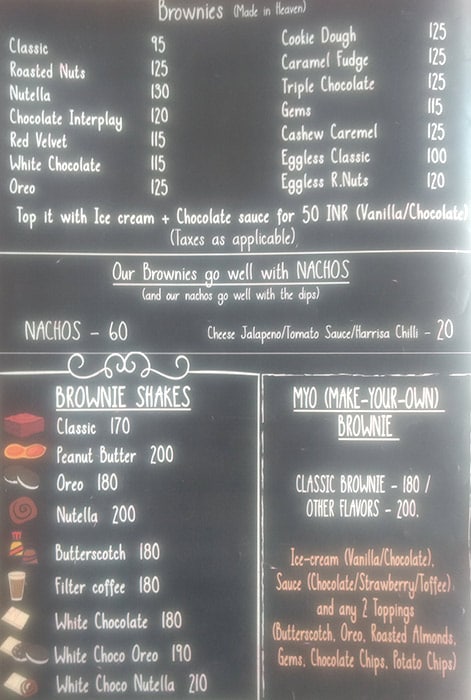 Brownies (Made in Heaven)
Classic 95
Roasted Nuts 125
Nutella 130
Chocolate Interplay 120
Red Velvet 115
White Chocolate 115
Oreo 125
Cookie Dough 125
Caramel Fudge 125
Triple Chocolate 125
Gems 115
Cashew Caremel 125
Eggless Classic 100
Eggless R.Nuts 120
Top it with Ice cream + Chocolate sauce for 50 INR (Vanilla/Chocolate)
(Taxes as applicable)
Our Brownies go well with NACHOS
(and our nachos go well with the dips)
NACHOS - 60
Cheese Jalapeno/Tomato Sauce/Harrisa Chilli - 20
BROWNIE SHAKES
Classic 170
Peanut Butter 200
Oreo 180
Nutella 200
Butterscotch 180
Filter coffee 180
White Chocolate 180
White Choco Oreo 190
White Choco Nutella 210
MYO (MAKE-YOUR-OWN)
BROWNIE
CLASSIC BROWNIE - 180 /
OTHER FLAVORS - 200.
Ice-cream (Vanilla/Chocolate),
Sauce (Chocolate/Strawberry/Toffee)
and any 2 Toppings
(Butterscotch, Oreo, Roasted Almonds,
Gems, Chocolate Chips, Potato Chips)